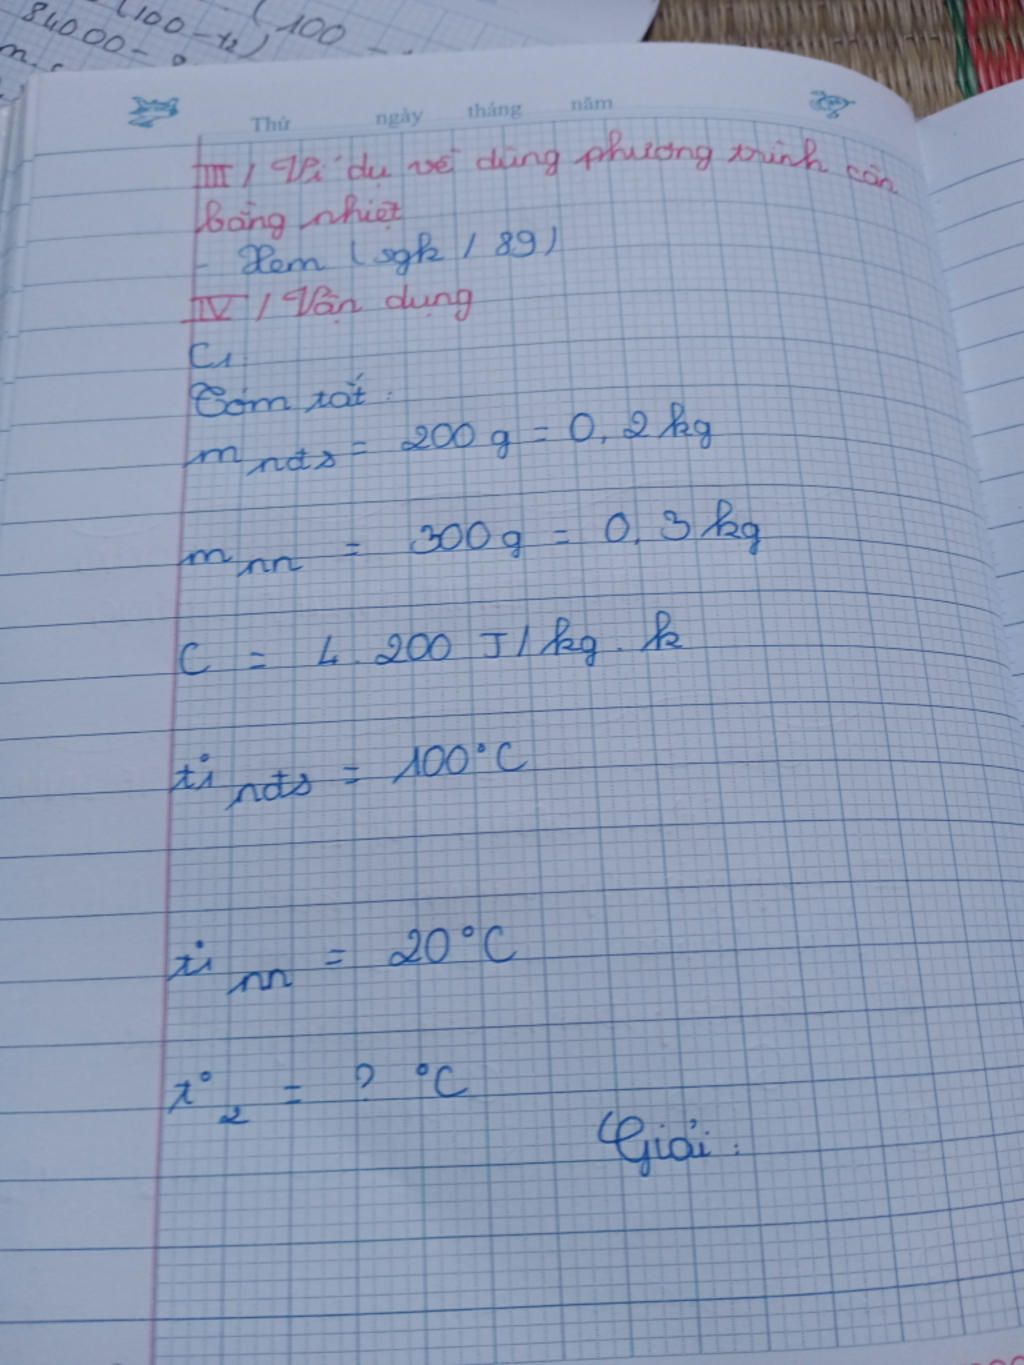 (100 - t2) (100 -
84000 -
m
Thứ ngày tháng năm
III / Ví dụ về dùng phương trình cân
bằng nhiệt
- Xem (sgk / 89)
IV / Vận dụng
C1
Tóm tắt:
m nds = 200g = 0,2kg
m nn = 300g = 0,3kg
C = 4.200 J/kg.k
t°1 nds = 100°C
t°1 nn = 20°C
t°2 = ? °C
Giải: